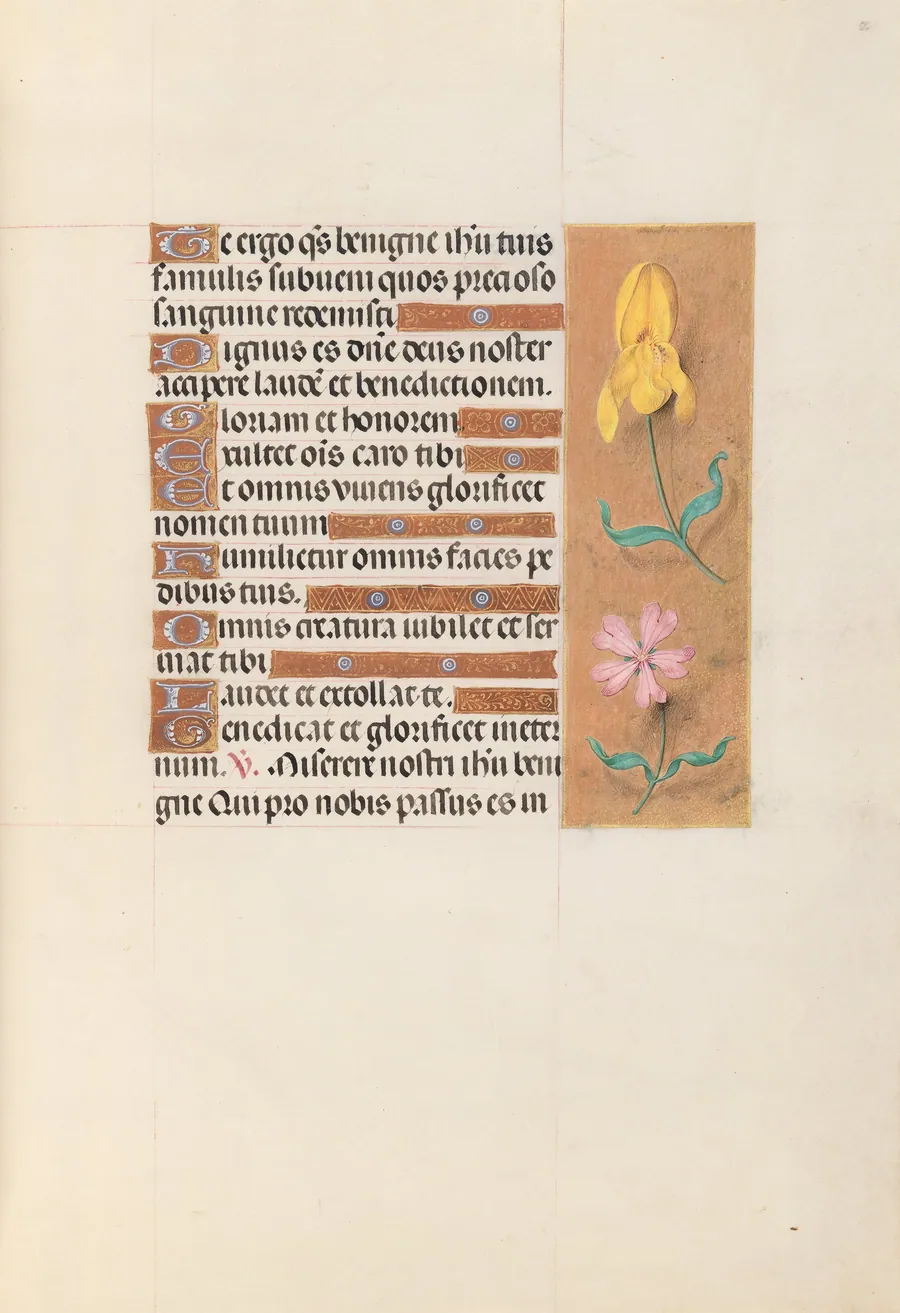 Te ergo qs̄ benigne ihū tuis
famulis subueni quos precioso
sanguine redemisti
Dignus es dn̄e deus noster
accipere laudē et benedictionem.
Gloriam et honorem
Exultet oīs caro tibi
Et omnis viuens glorificet
nomen tuum
Humilietur omnis facies pe
dibus tuis.
Omnis creatura iubilet et ser
uiat tibi
Laudet et extollat te.
Benedicat et glorificet ineter
num. V̄. Miserere nostri ihū beni
gne Qui pro nobis passus es in